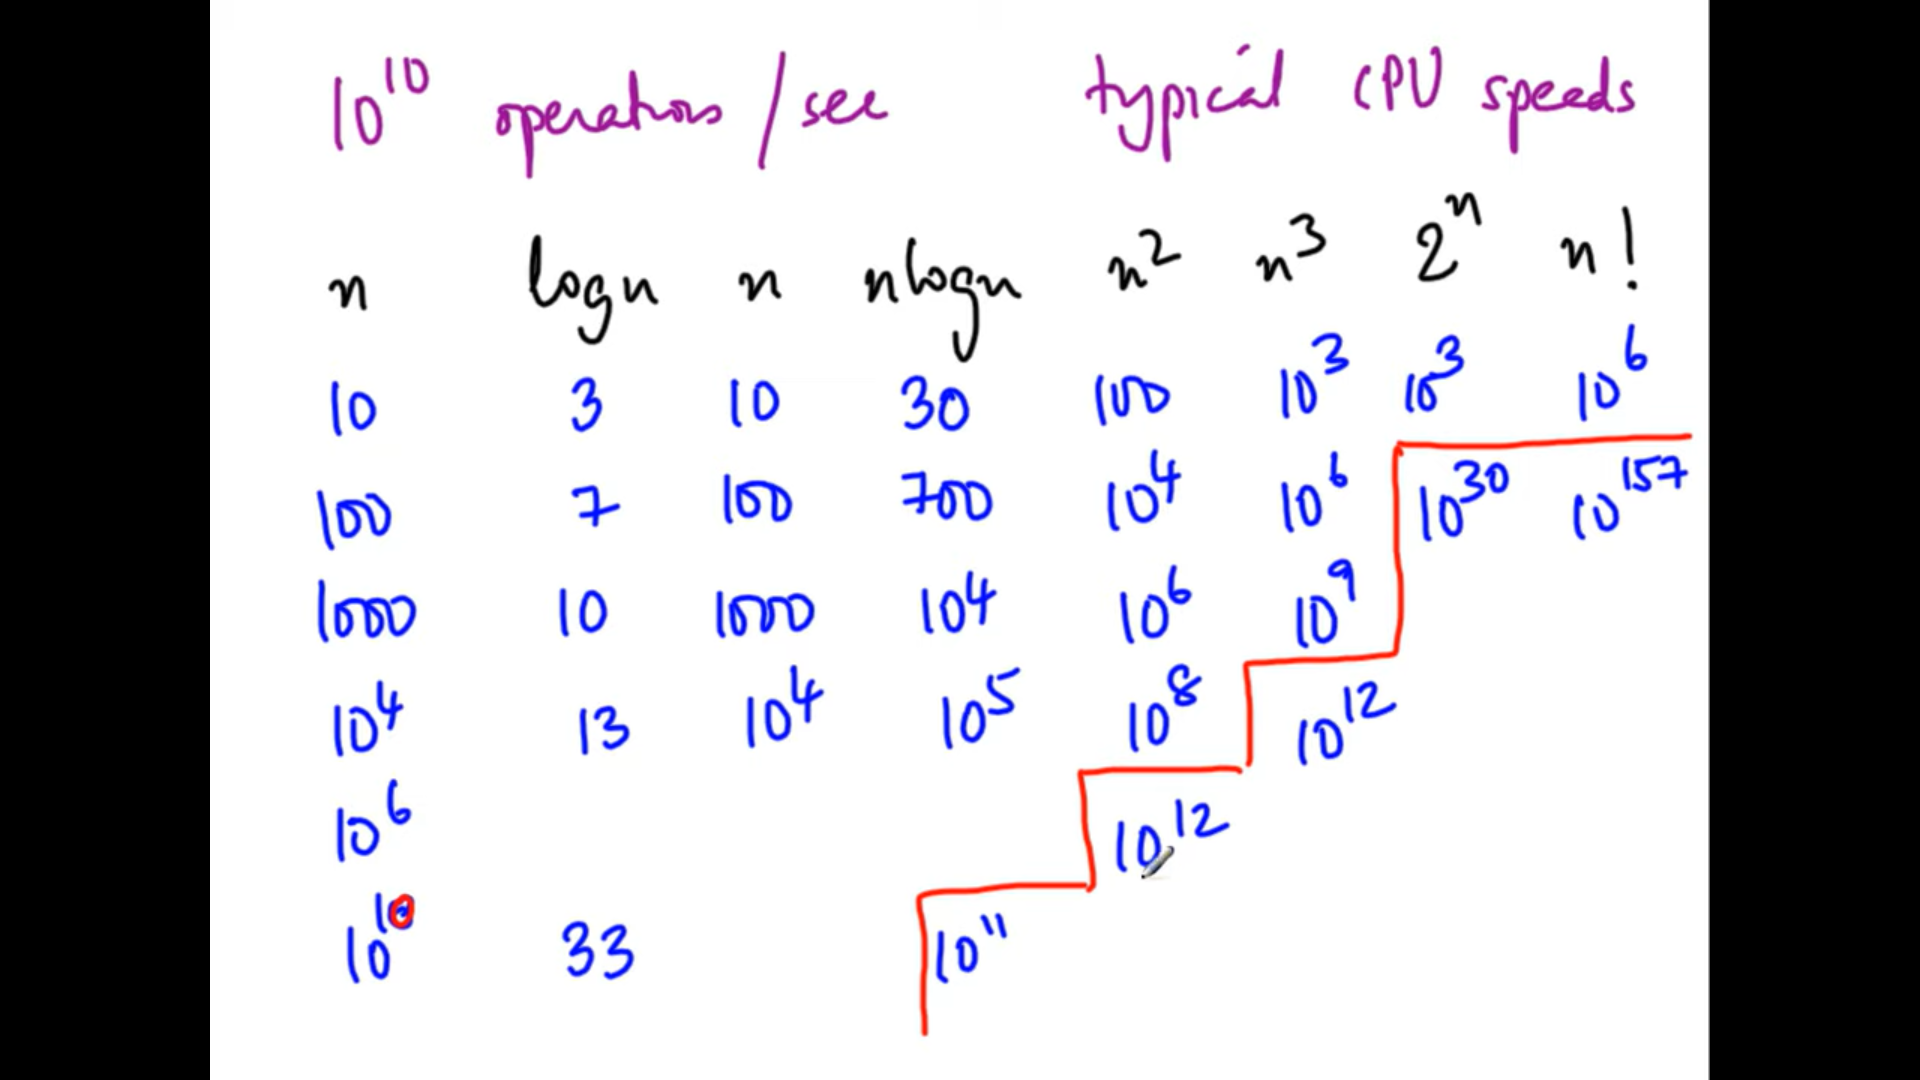 10^10 operations / sec typical CPU speeds
n log n n n log n n^2 n^3 2^n n!
10 3 10 30 100 10^3 10^3 10^6
100 7 100 700 10^4 10^6 10^30 10^157
1000 10 1000 10^4 10^6 10^9
10^4 13 10^4 10^5 10^8 10^12
10^6 10^12
10^10 33 10^11